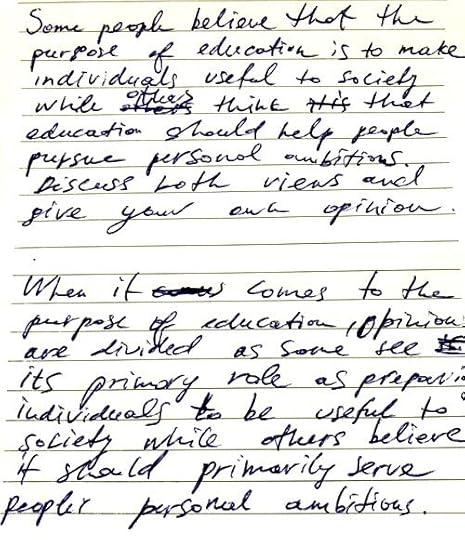 Some people believe that the
purpose of education is to make
individuals useful to society
while others think that
education should help people
pursue personal ambitions.
Discuss both views and
give your own opinion.
When it comes to the
purpose of education, opinion
are divided as some see
its primary role as preparin
individuals to be useful to
society while others believe
it should primarily serve
people's personal ambitions.